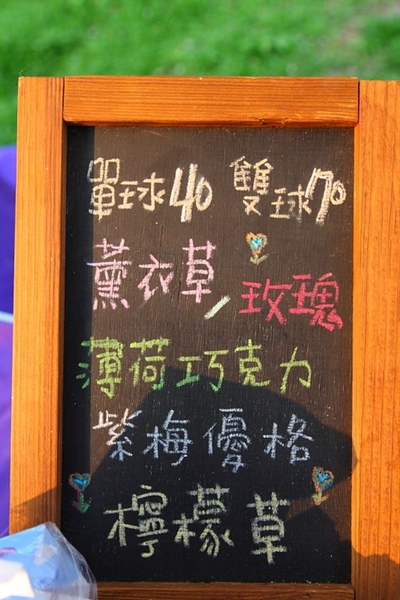 單球40 雙球70
薰衣草/玫瑰
薄荷巧克力
紫梅優格
檸檬草